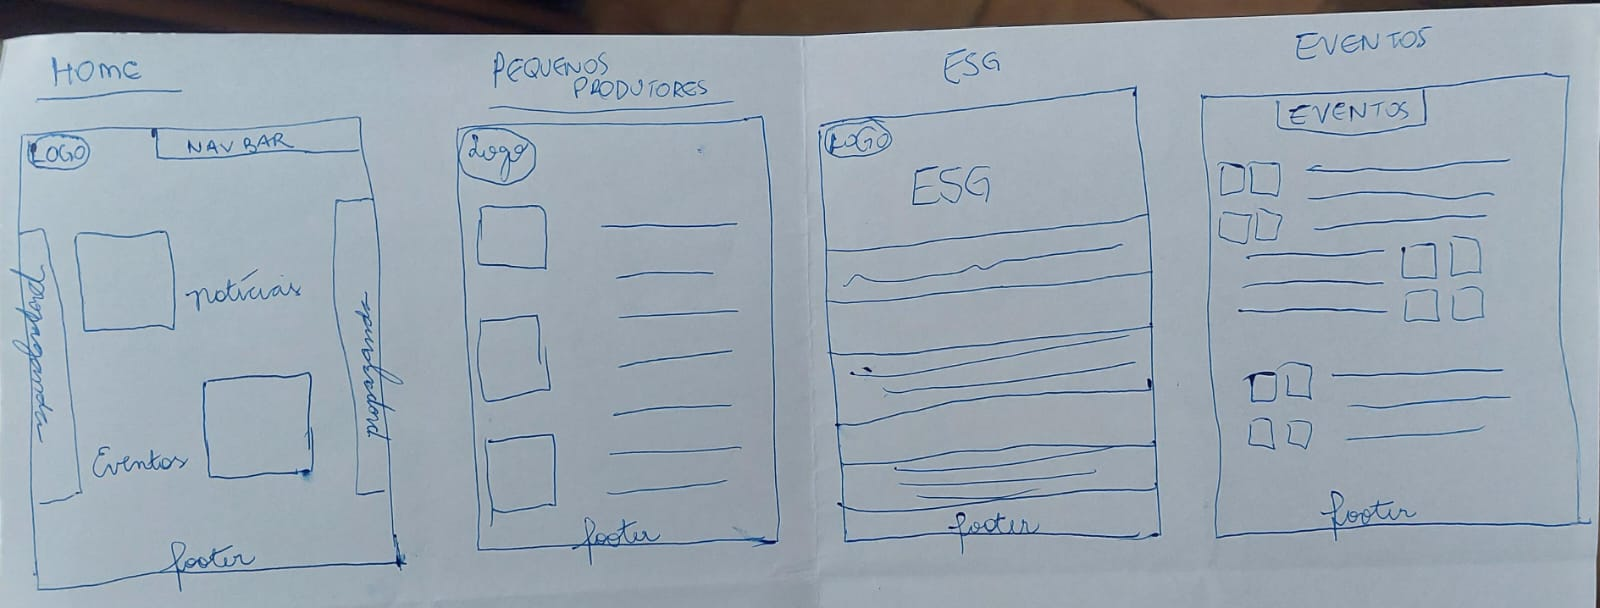 HOME
LOGO
NAVBAR
propagandas
notícias
Eventos
footer
PEQUENOS
PRODUTORES
Logo
footer
ESG
LOGO
ESG
footer
EVENTOS
EVENTOS
footer